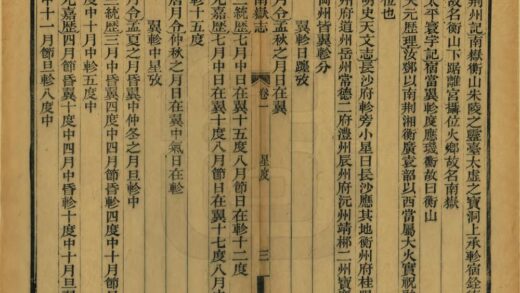 荆州記南嶽衡山朱陵之靈臺太虛之寶洞上承軫宿銓德
故名衡山下踞離宮攝位火鄉故名南嶽
太平寰宇記宿當翼軫度應璣衡故曰衡山
天元歷理汝鄧以南荆湘衡廣袁韶以西當屬大火實祝融
位也
明史天文志長沙府軫旁小星曰長沙應其地衡州府桂陽
州府道州岳州常德二府澧州辰州府沅州靖郴二州寶
州皆翼軫分
翼軫日躔攷
月令孟秋之月日在翼
南嶽志 卷一 星度 三
三統歷七月中日在翼十五度八月節日在軫十二度
元嘉歷七月節日在翼十度八月節日在翼十七度八月
軫十五度
月令仲秋之月日在翼中氣日在軫
翼軫中星攷
月令孟夏之月昏翼中仲冬之月旦軫中
三統歷三月中昏翼四度中四月節昏軫四度中十月節
元嘉歷四月節昏翼十度中四月中昏軫十度中十月旦翼
中十一月節旦軫八度中